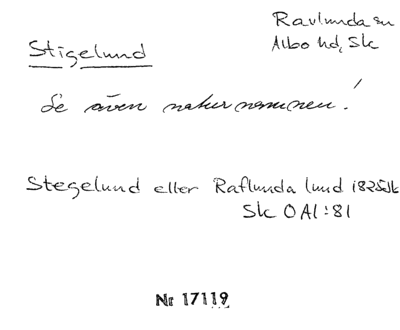 Ravlunda sn
Stigelund
Albo hd, Sk
Se även naturnamnen!
Stegelund eller Raflunda lund 1825 Jb
Sk O Al:81
Nr 17119